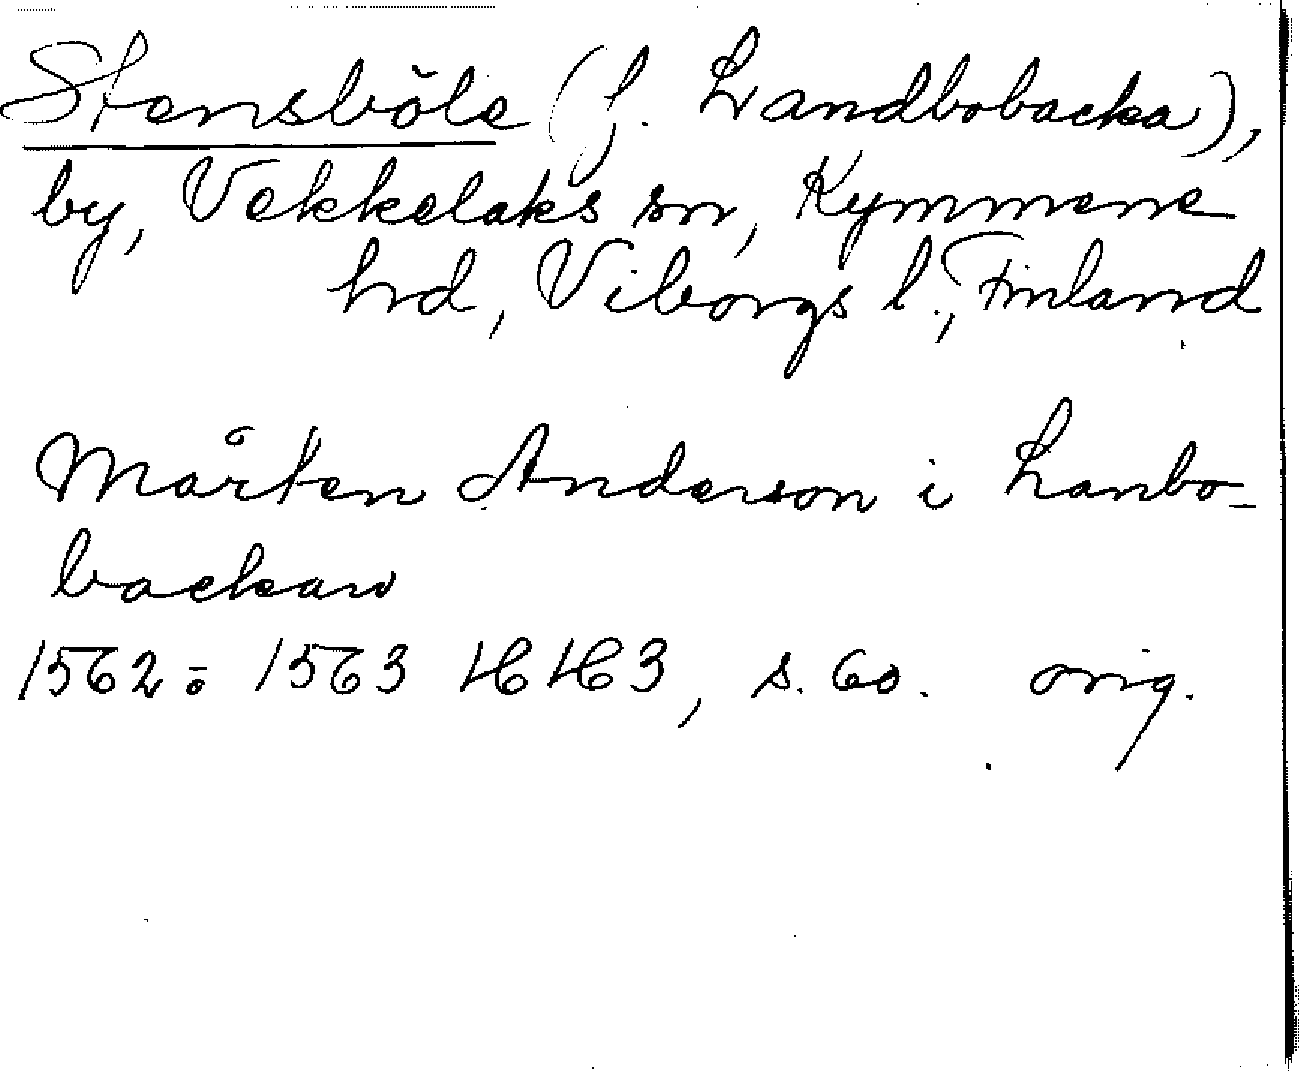 Stensböle (f. Landbobacka),
by, Vekkelaks sn, Kymmene
hrd, Viborgs l., Finland
Mårten Anderson i Lanbo-
backan
1562 : 1563 HH3, s. 60. orig.